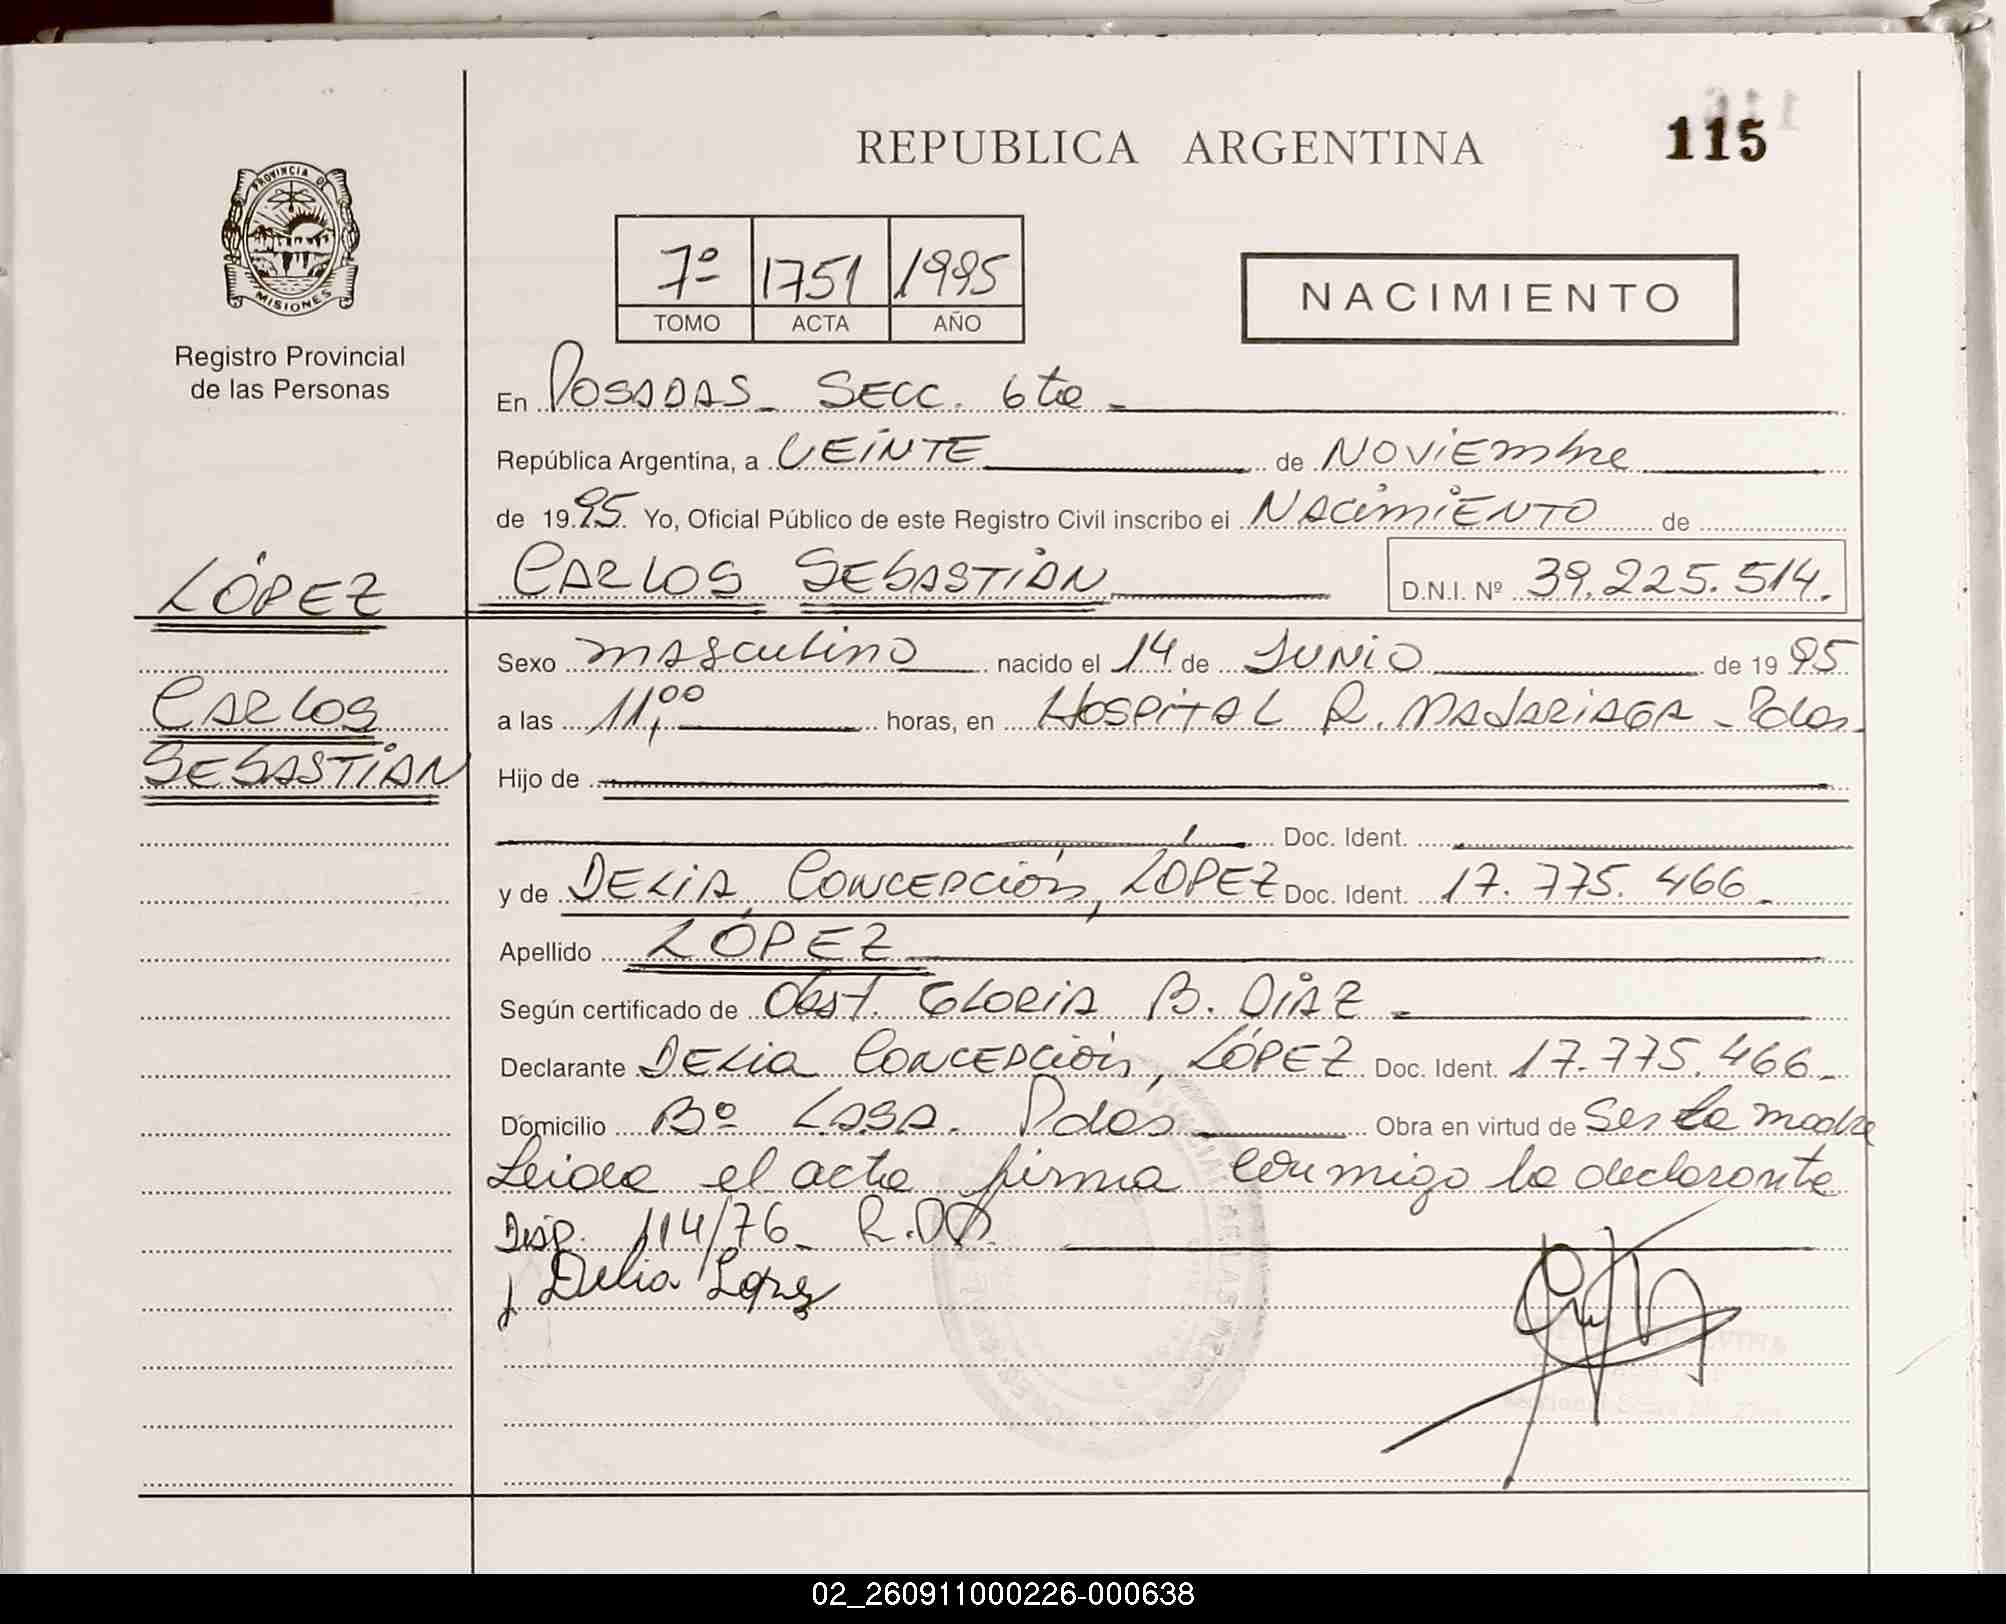 REPUBLICA ARGENTINA
115
PROVINCIA DE
MISIONES
Registro Provincial
de las Personas
7º 1751 1995
TOMO ACTA AÑO
NACIMIENTO
En POSADAS - SECC. 6ta -
República Argentina, a VEINTE de NOVIEMbre
de 1995. Yo, Oficial Público de este Registro Civil inscribo el NACIMIENTO de
LÓPEZ
CARLOS SEBASTIÁN D.N.I. Nº 39.225.514.
Sexo masculino nacido el 14 de JUNIO de 1995
CARLOS
a las 11,00 horas, en HOSPITAL R. MADARIAGA - Pdas.
SEBASTIÁN
Hijo de
Doc. Ident.
y de DELIA CONCEPCIÓN, LÓPEZ Doc. Ident. 17.775.466 -
Apellido LÓPEZ
Según certificado de Obst. GLORIA B. DÍAZ -
Declarante DELIA CONCEPCIÓN, LÓPEZ Doc. Ident. 17.775.466 -
Domicilio Bº Pdas Obra en virtud de Ser la madre
Leida el acta firma conmigo la declarante
Disp. 114/76 -
Delia Lopez
02_260911000226-000638